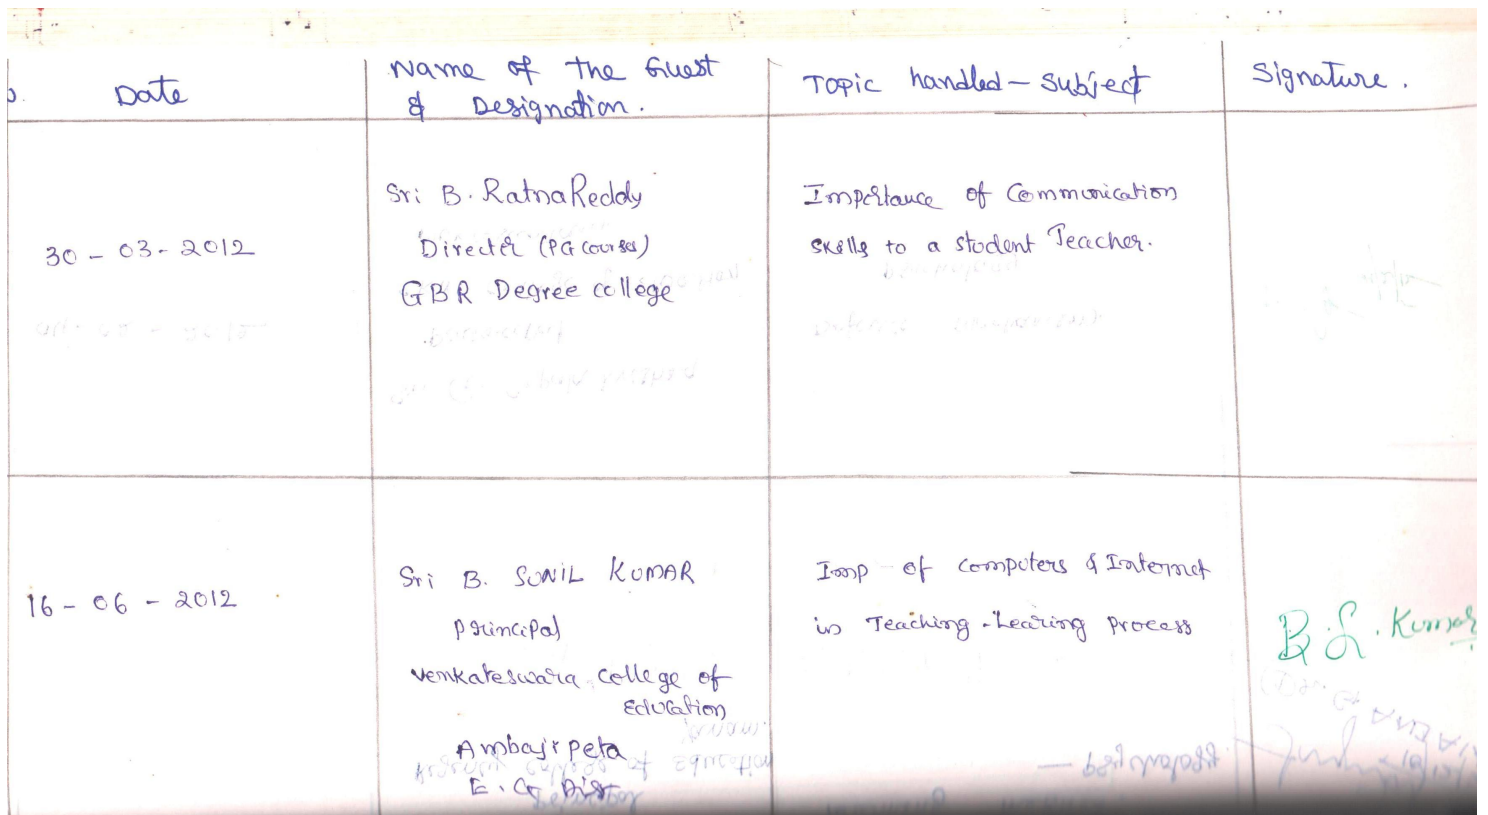 Date
Name of the Guest
& Designation.
Topic handled - Subject
Signature.
30 - 03 - 2012
Sri B. Ratna Reddy
Director (PG courses)
GBR Degree college
Importance of Communication
skills to a student Teacher.
16 - 06 - 2012
Sri B. SUNIL KUMAR
principal
Venkateswara college of
Education
Ambajipeta
E. G Dist
Imp of computers & Internet
in Teaching - Learing process
B. S. Kumar